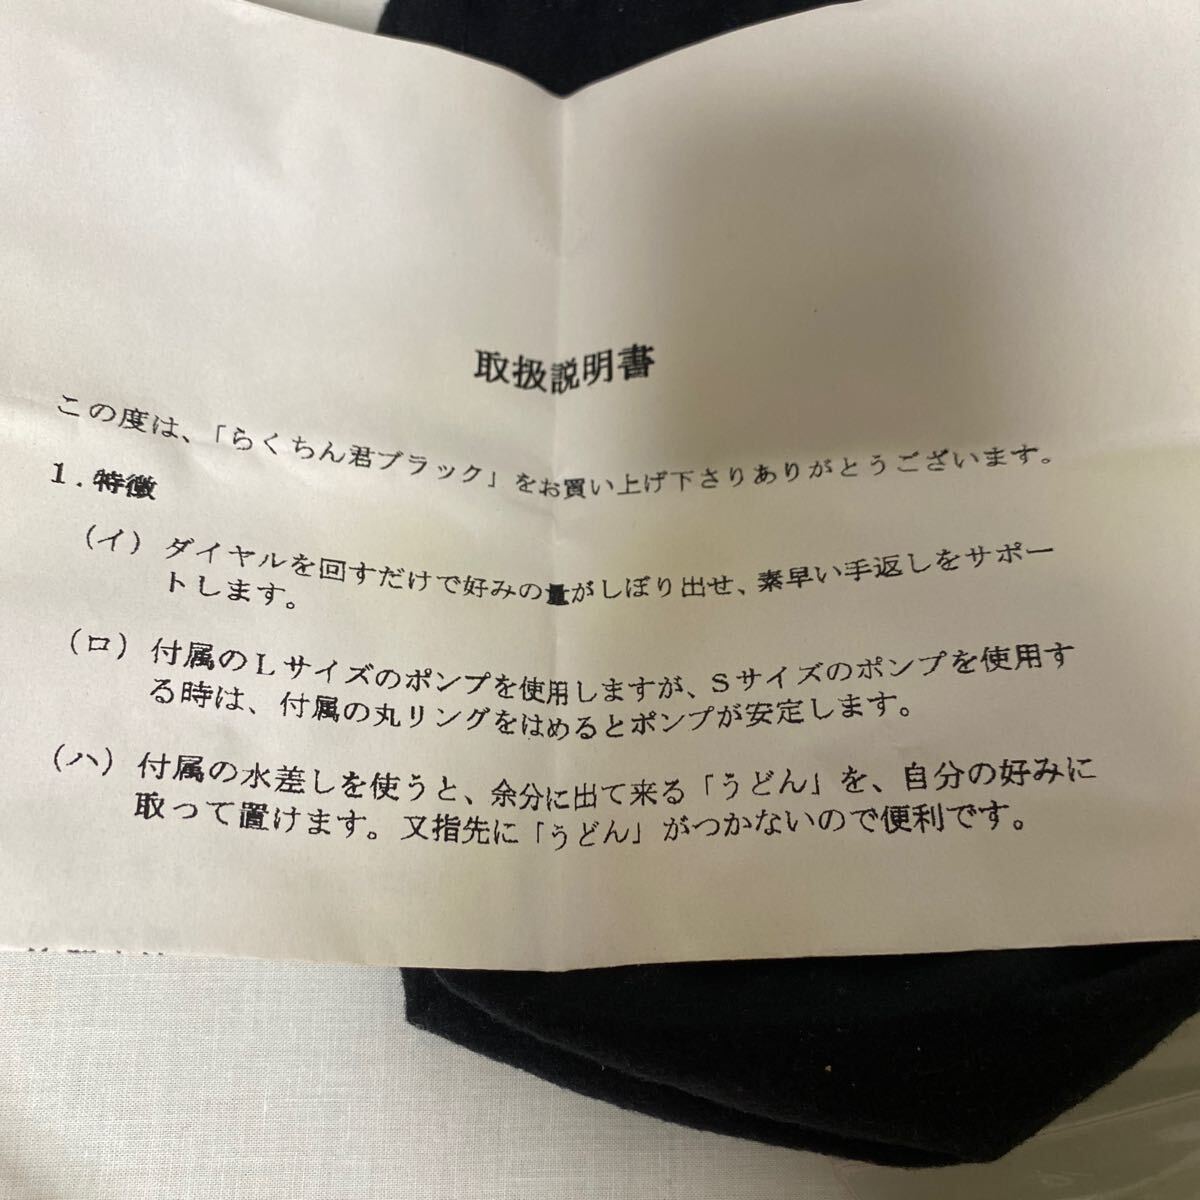 取扱説明書
この度は、「らくちん君ブラック」をお買い上げ下さりありがとうございます。
1．特徴
（イ）ダイヤルを回すだけで好みの量がしぼり出せ、素早い手返しをサポー
トします。
（ロ）付属のＬサイズのポンプを使用しますが、Ｓサイズのポンプを使用す
る時は、付属の丸リングをはめるとポンプが安定します。
（ハ）付属の水差しを使うと、余分に出て来る「うどん」を、自分の好みに
取って置けます。又指先に「うどん」がつかないので便利です。